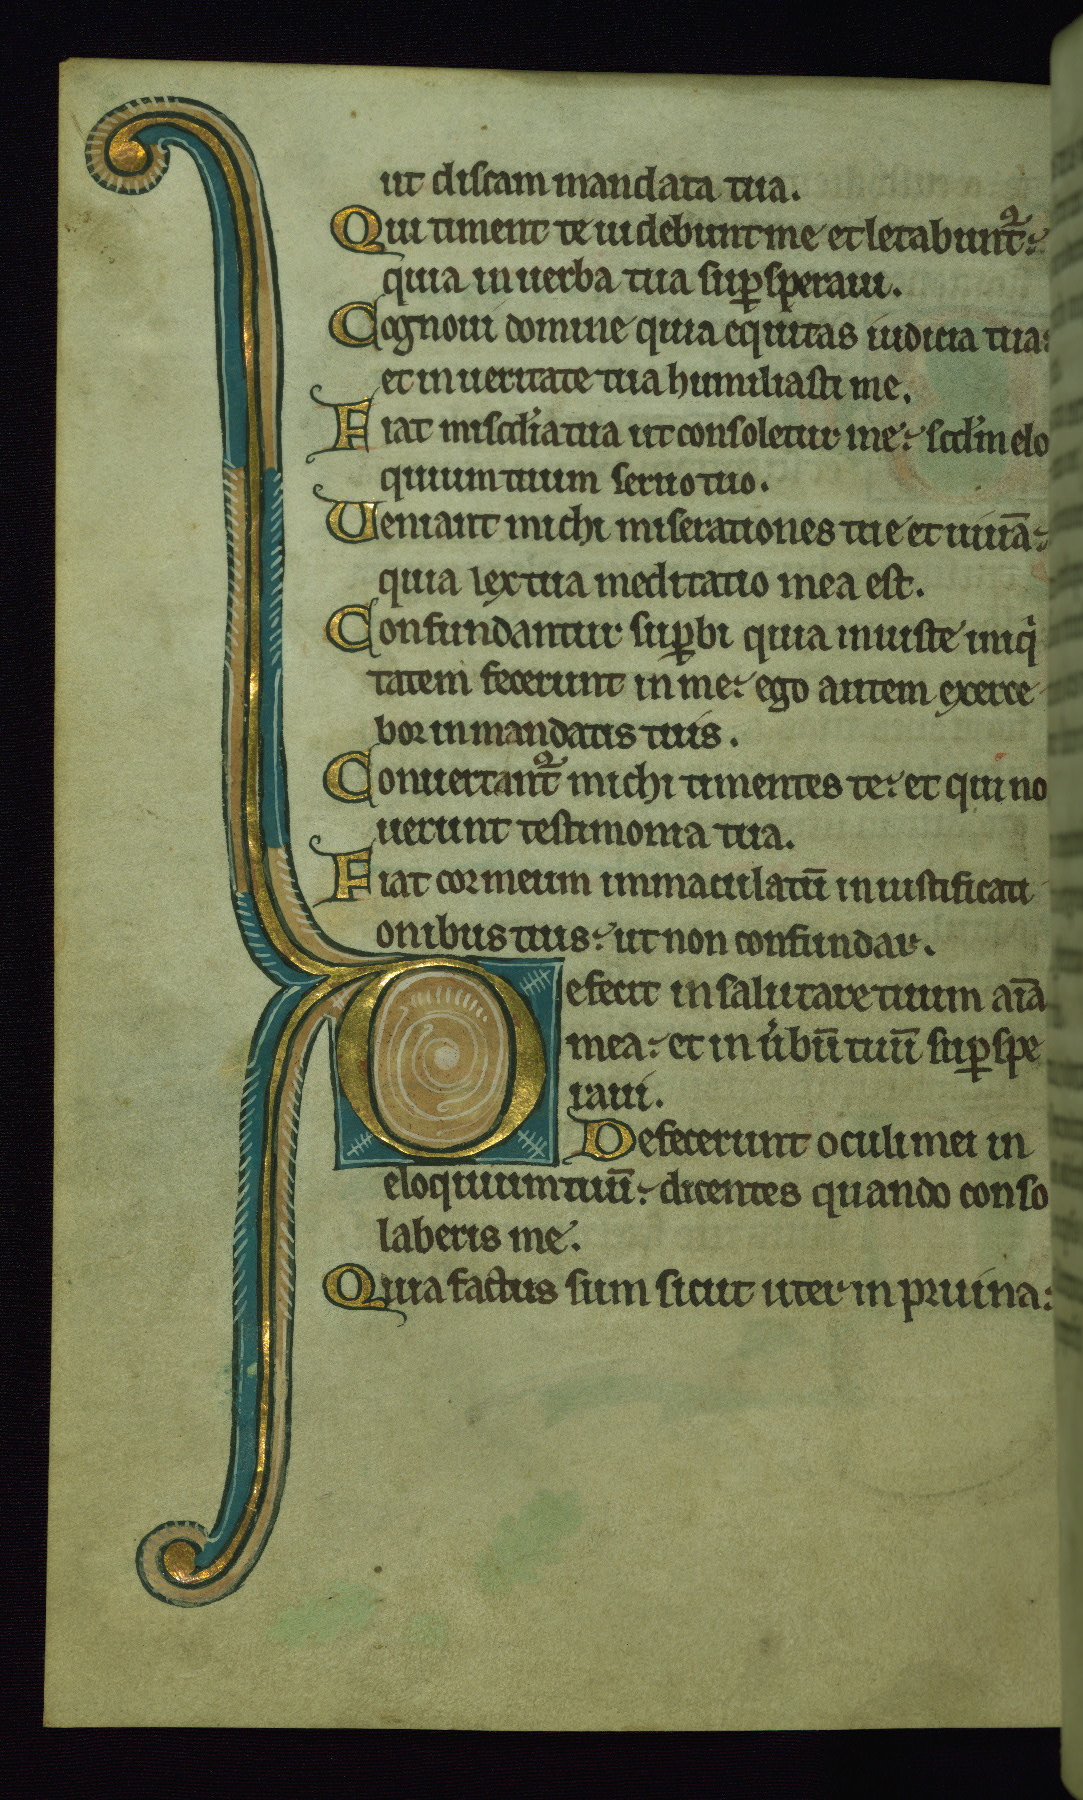 ut discam mandata tua.
Qui timent te uidebunt me et letabunt᷑:
quia in uerba tua sup̱speraui.
Cognoui domine quia equitas iudicia tua:
et in ueritate tua humiliasti me.
Fiat miscd̕ia tua ut consoletur me: scd̕m elo
quium tuum seruo tuo.
Ueniant michi miserationes tue et uiuā:
quia lex tua meditatio mea est.
Confundantur sup̱bi quia iniuste iniqⁱ
tatem fecerunt in me: ego autem exerce
bor in mandatis tuis.
Conuertant᷑ michi timentes te: et qui no
uerunt testimonia tua.
Fiat cor meum immaculatū in iustificati
onibus tuis: ut non confundar.
Defecit in salutare tuum aīa
mea: et in u̕bū tuū sup̱spe
raui.
Defecerunt oculi mei in
eloquium tuū: dicentes quando conso
laberis me.
Quia factus sum sicut uter in pruina: